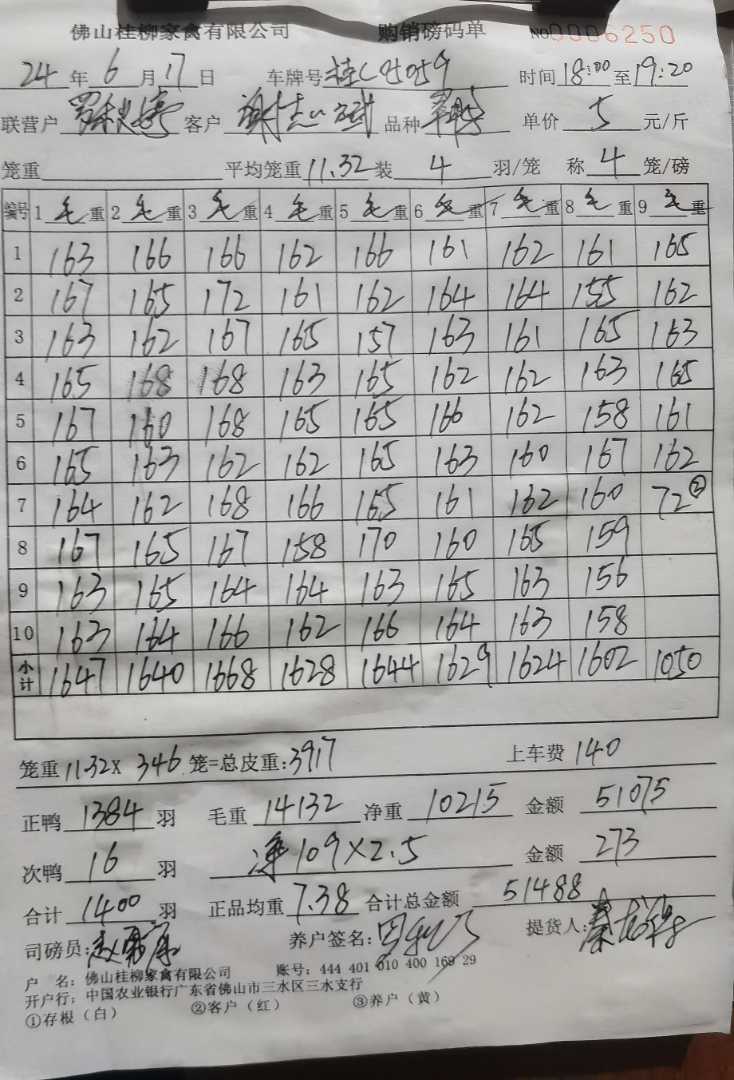 佛山桂柳家禽有限公司 购销磅码单 NO 0006250
24 年 6 月 17 日 车牌号 时间 18:00 至 19:20
联营户 客户 品种 单价 5 元/斤
笼重 平均笼重 11.32 装 4 羽/笼 称 4 笼/磅
编号 1 毛 重 2 毛 重 3 毛 重 4 毛 重 5 毛 重 6 毛 重 7 毛 重 8 毛 重 9 毛 重
1 163 166 166 162 166 161 162 161 165
2 167 165 172 161 162 164 164 155 162
3 163 162 167 165 157 163 161 165 163
4 165 168 168 163 165 162 162 163 165
5 167 160 168 165 165 166 162 158 161
6 165 163 162 162 165 163 160 167 162
7 164 162 168 166 165 161 162 160 72②
8 167 165 167 158 170 160 165 159
9 163 165 164 164 163 165 163 156
10 163 164 166 162 166 164 163 158
小计 1647 1640 1668 1628 1644 1629 1624 1602 1050
笼重 11.32× 346 笼=总皮重: 3917 上车费 140
正鸭 1384 羽 毛重 14132 净重 10215 金额 51075
次鸭 16 羽 净109×2.5 金额 273
合计 1400 羽 正品均重 7.38 合计总金额 51488
司磅员: 养户签名: 提货人:
户 名: 佛山桂柳家禽有限公司 账号: 444 401 010 400 169 29
开户行: 中国农业银行广东省佛山市三水区三水支行
①存根(白) ②客户(红) ③养户(黄)